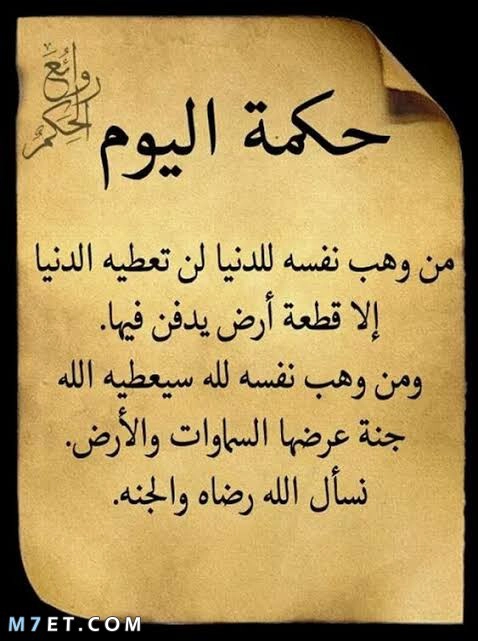 روائع
الحكم
حكمة اليوم
من وهب نفسه للدنيا لن تعطيه الدنيا
إلا قطعة أرض يدفن فيها.
ومن وهب نفسه لله سيعطيه الله
جنة عرضها السماوات والأرض.
نسأل الله رضاه والجنه.
M7ET.COM